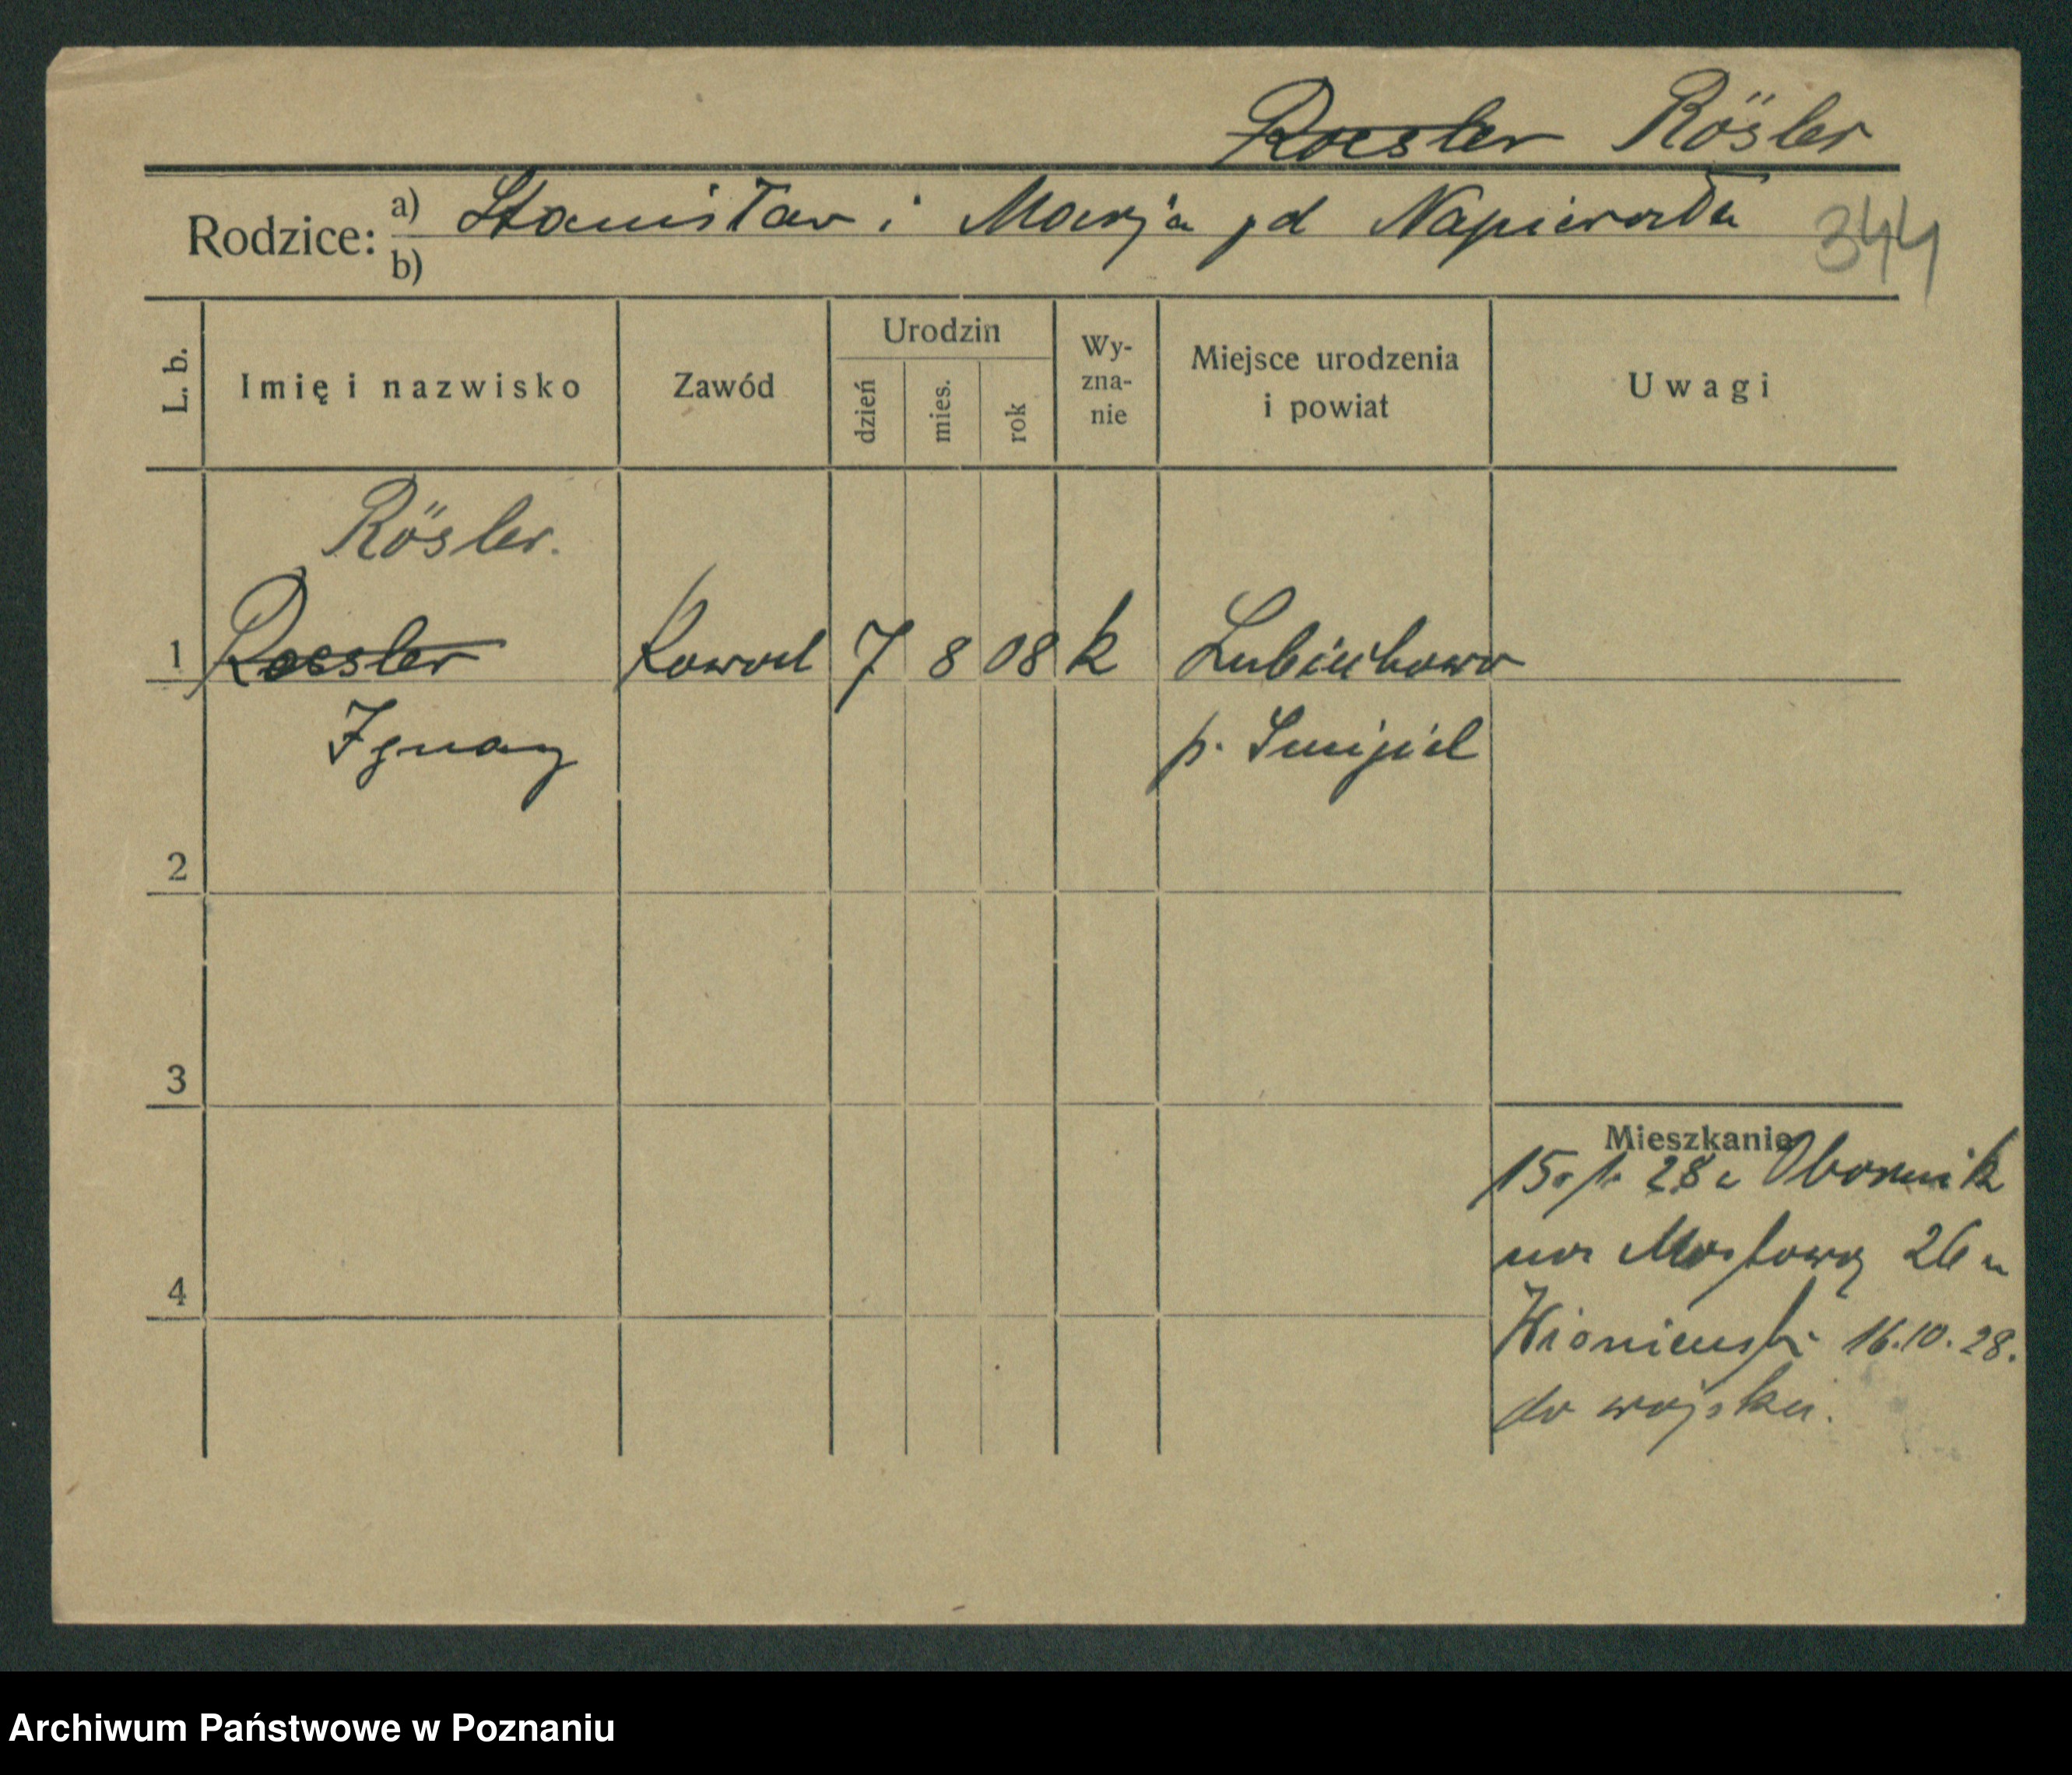 Roesler Rösler
Rodzice: a) Stanisław i Marja zd Napierała
b)
344
L. b.
Imię i nazwisko
Zawód
Urodzin
dzień
mies.
rok
Wy-
zna-
nie
Miejsce urodzenia
i powiat
Uwagi
Rösler.
1 Roesler Kowal 7 8 08 k Lubiechowo
Ignacy p. Śmigiel
2
3
4
Mieszkanie
28 z Obornik
na Mostową 26 u
16.10.28.
do wojska.
Archiwum Państwowe w Poznaniu